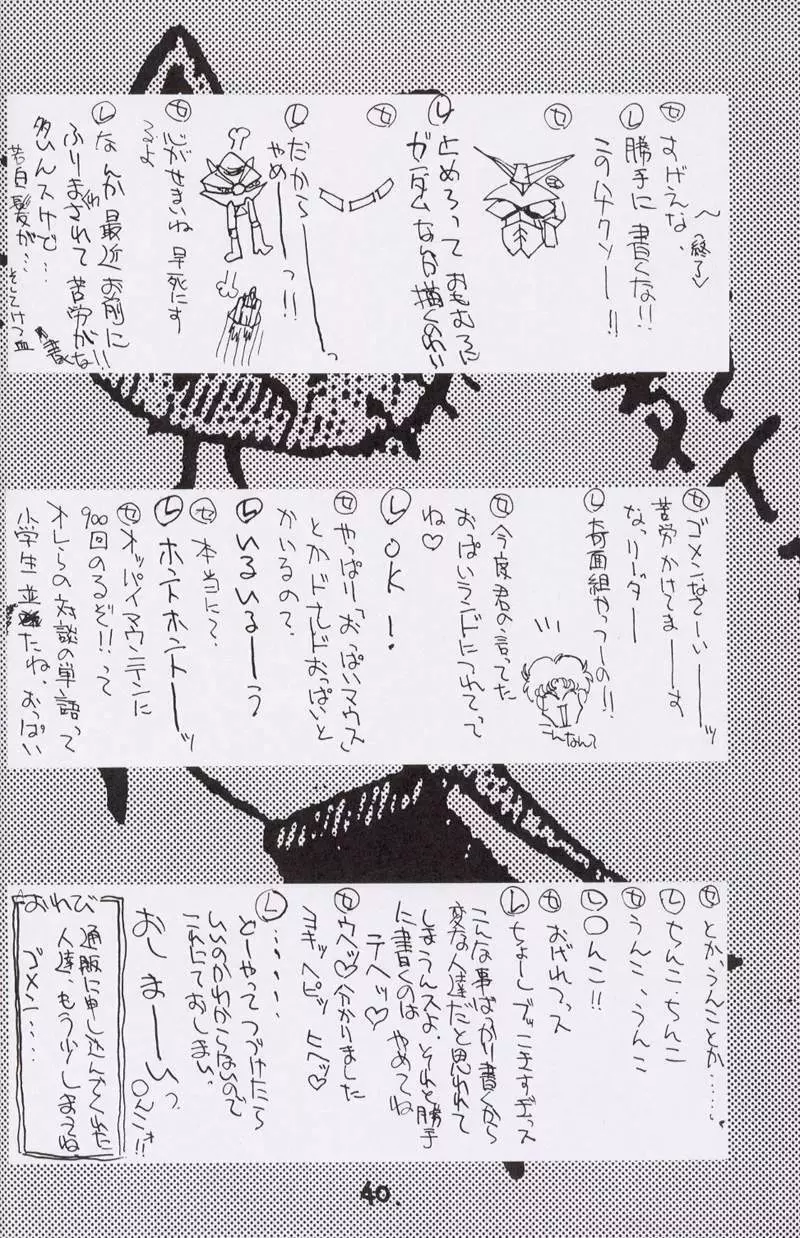 ㋝すげえな、
～(終了♡
Ⓛ勝手に書くな!!
このハナクソー!!
㋝
Ⓛ止めろって おもむろに
ガンダムなんか描くのわい
㋝
Ⓛだから〜〜っ
やめ――っ!!
㋝心がせまいね 早死にす
るよ
Ⓛなんか最近お前に!!
ふりまわされて苦労がな
多いんスけど…
若白髪が…
そしてけつ血
㋝ゴメンなさーいーッ
苦労かけてまーす
なっリーダー
Ⓛ奇面組かっつーの!!
こんなんて
㋝今度君の言ってた
おっぱいランドにつれてって
ね♡
ⓁOK!
㋝やっぱり「おっぱいマウス」
とかドナルドおっぱいと
かいるの?
Ⓛいるいるーう
㋝本当に?
Ⓛホントホントーッ
㋝オッパイマウンテンに
900回のるぞ!!って
オレらの対談の単語って
小学生並みたね、おっぱい
㋝とかうんことか……
Ⓛちんこ、ちんこ
㋝うんこ、うんこ
Ⓛ〇んこ!!
㋝おげれつっス
Ⓛちょーしブッこきすぎっス
こんな事ばっかり書くから
変な人達だと思われて
しまうんスよ、それと勝手
に書くのは やめてね
テヘッ♡
㋝ウヘッ♡分かりました
ヨキッヘピッ ヒヘッ♡
Ⓛ……
どーやってつづけたら
しいのかわからないので
これにておしまい、
おしまーいっ
〇んこ!!
おわび
通販に申し込んでくれた
人達、もう少しまってね
ゴメン…
40.